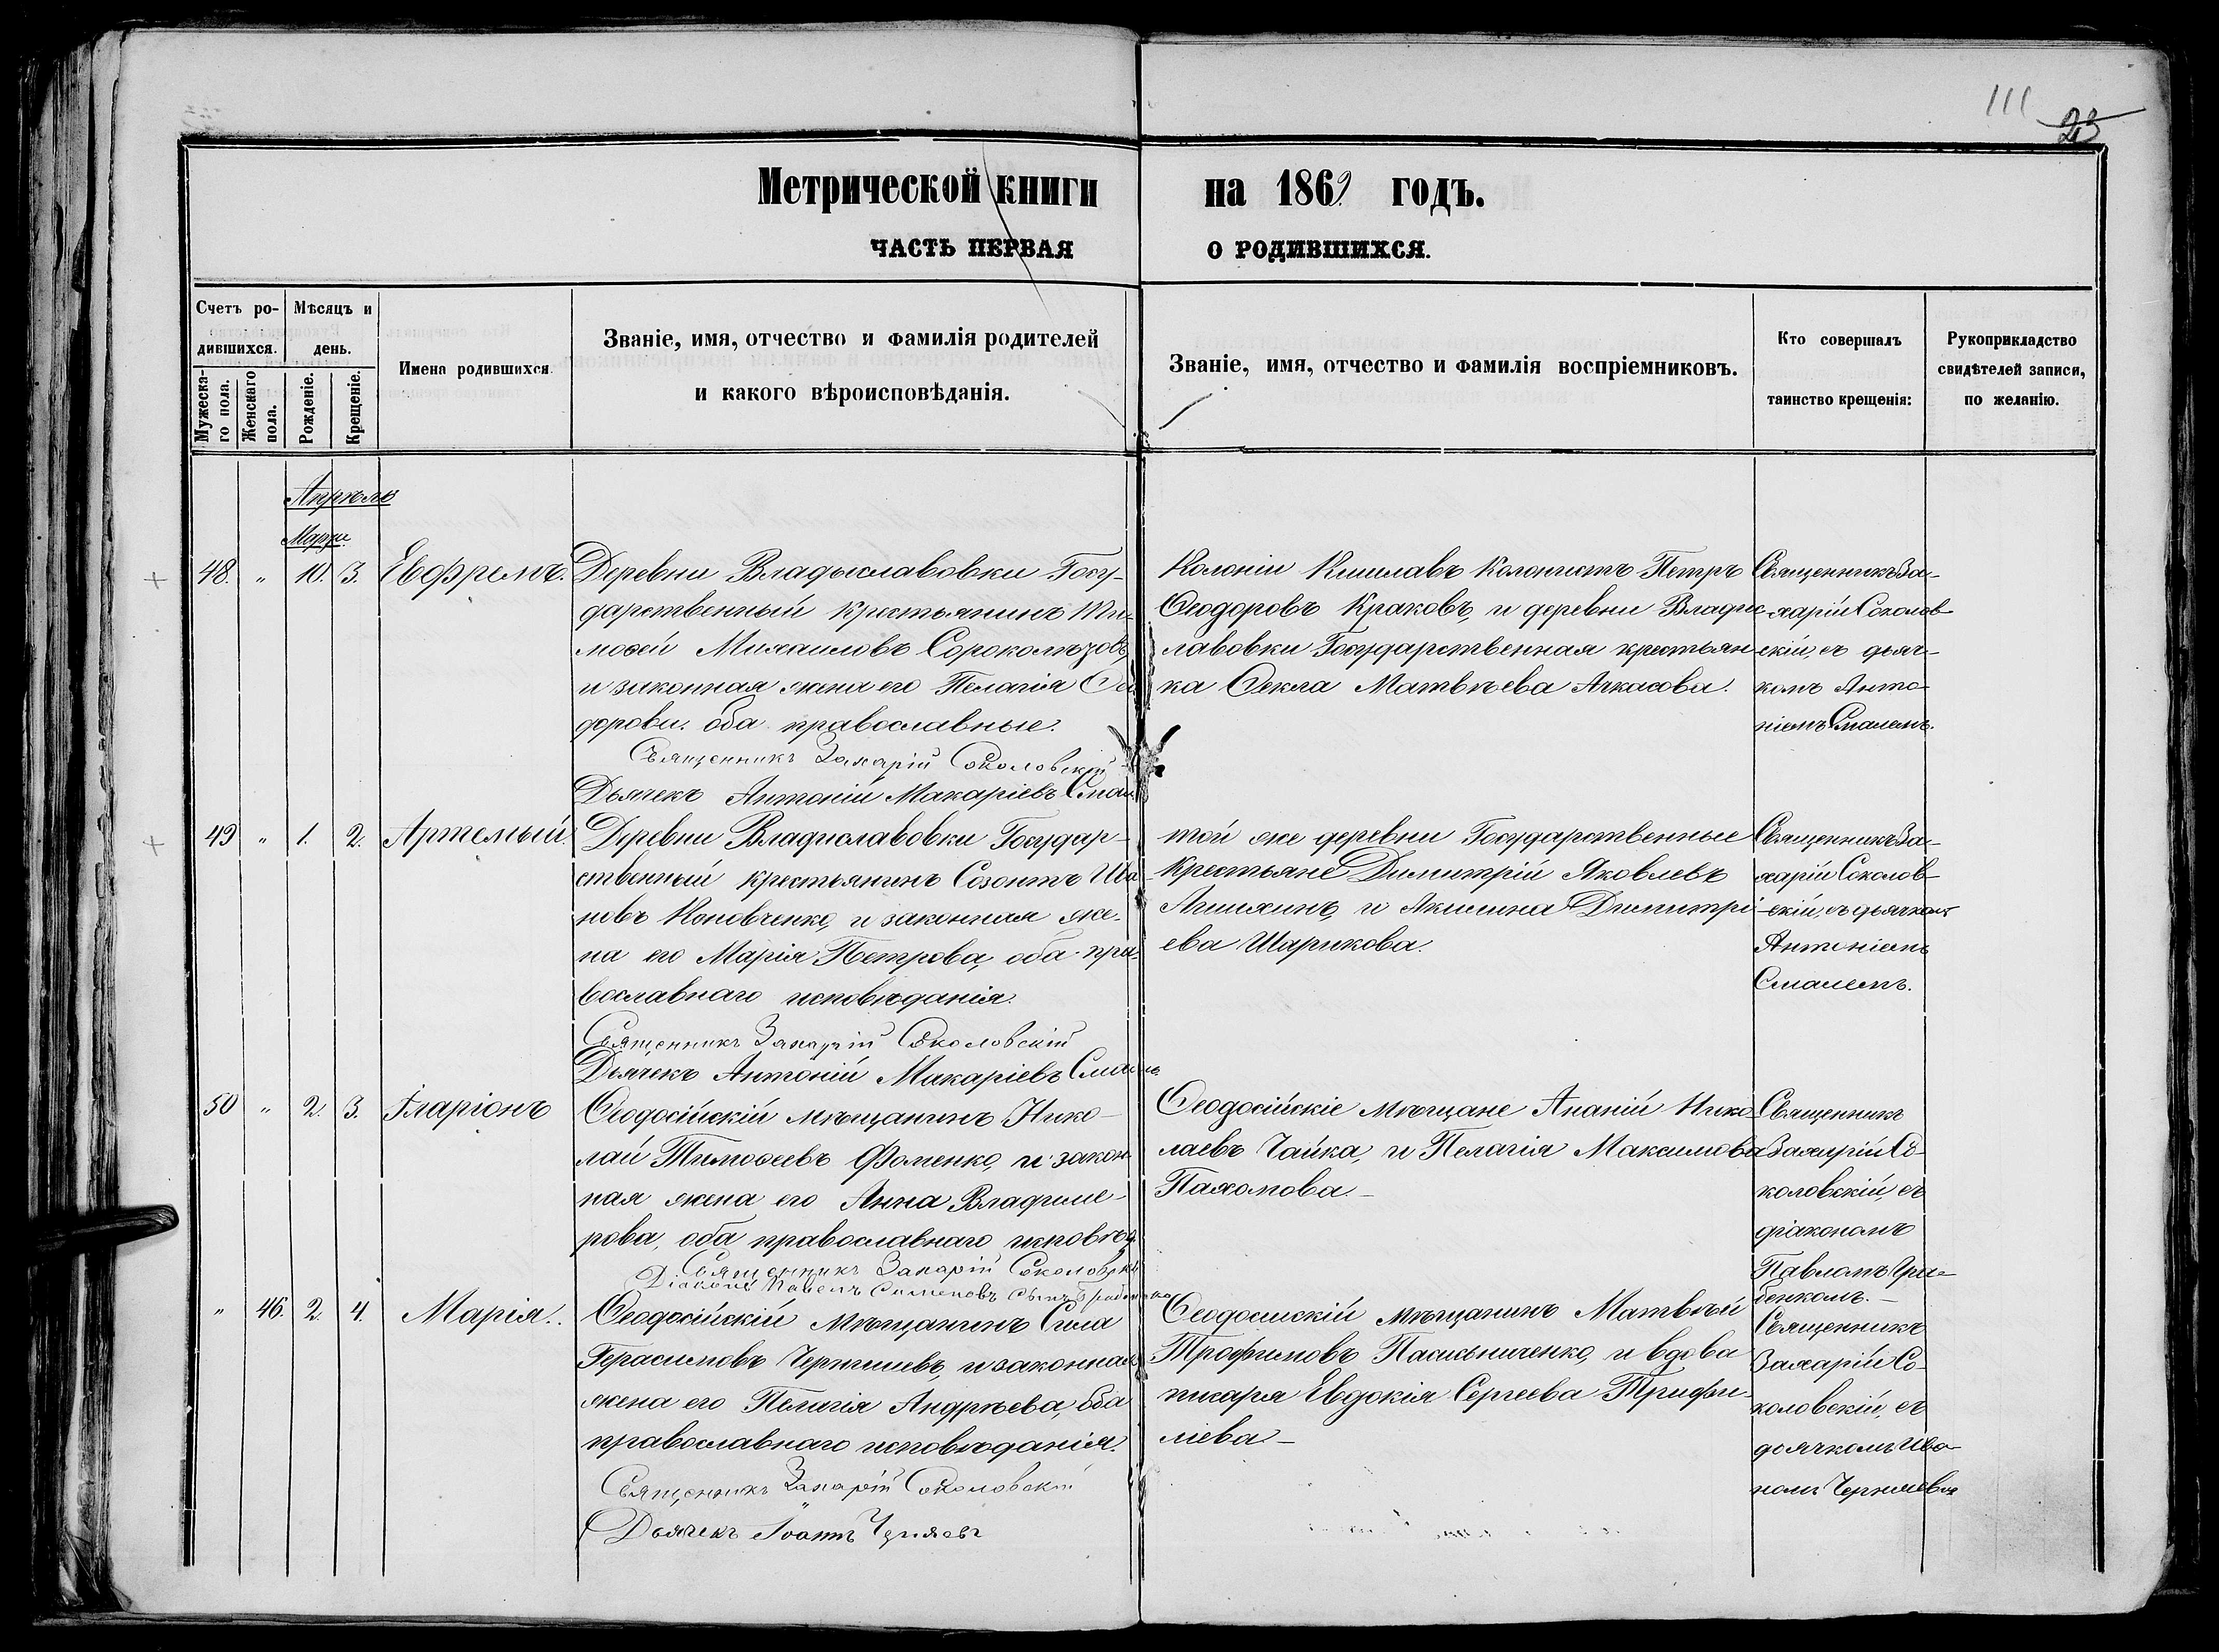 111
23
Метрической книги на 1869 годъ.
ЧАСТЬ ПЕРВАЯ О РОДИВШИХСЯ.
Счетъ ро-
дившихся.
Мужеска-
го пола.
Женскаго
пола.
Мѣсяцъ и
день.
Рожденіе.
Крещеніе.
Имена родившихся.
Званіе, имя, отчество и фамилія родителей
и какого вѣроисповѣданія.
Званіе, имя, отчество и фамилія воспріемниковъ.
Кто совершалъ
таинство крещенія:
Рукоприкладство
свидѣтелей записи,
по желанію.
Апрѣль
Марта
48. " 10. 3. Евфремъ.
Деревни Владыславовки Госу-
дарственный крестьянинъ Ти-
моѳей Михаиловъ Сороколѣтовъ,
и законная жена его Пелагія Ѳео
дорова. оба православные.
Священникъ Захарій Соколовскій
Дьячекъ Антоній Макаріевъ
Колоніи Кишлавъ Колонистъ Петръ
Ѳеодоровъ Краковъ, и деревни Владис-
лавовки Государственная крестьян
ка Ѳекла Матвѣева Ачкасова.
Священникъ За-
харій Соколов-
скій, съ дьяч-
комъ Анто-
ніемъ Смалемъ.
49 " 1. 2. Артемый.
Деревни Владиславовки Государ-
ственный крестьянинъ Созонтъ Ива
новъ Коновченко, и законная же-
на его Марія Петрова, оба пра-
вославнаго исповѣданія.
Священникъ Захарій Соколовскій
Дьячекъ Антоній Макаріевъ
той же деревни Государственные
крестьяне Димитрій Яковлевъ
и Акилина Димитрі-
ева Шарикова.
Священникъ За-
харій Соколов-
скій, съ дьячкомъ
Антоніемъ
Смалемъ.
50 " 2. 3. Іларіонъ
Ѳеодосійскій мѣщанинъ Нико-
лай Тимоѳеевъ Фоменко, и закон
ная жена его Анна Владиме-
рова, оба православнаго исповѣд.
Священникъ Захарій Соколовскій
Діаконъ Павелъ Симеоновъ сынъ
Ѳеодосійскіе мѣщане Ананій Нико-
лаевъ Чайка, и Пелагія Максимова
Пахомова.
Священникъ
Захарій Со-
коловскій, съ
діакономъ
Павломъ Гри-
бенкомъ.
" 46. 2. 4. Марія.
Ѳеодосійскій мѣщанинъ Сила
Герасимовъ Чернышевъ, и законная
жена его Пелагія Андрѣева, оба
православнаго исповѣданія.
Священникъ Захарій Соколовскій
Дьячекъ Іоаннъ Черняевъ
Ѳеодосійскій мѣщанинъ Матвѣй
Трофимовъ Пасильниченко, и вдова
писаря Евдокія Сергеева Трифи-
ліева
Священникъ
Захарій Со-
коловскій, съ
дьячкомъ Ива-
номъ Черняевымъ